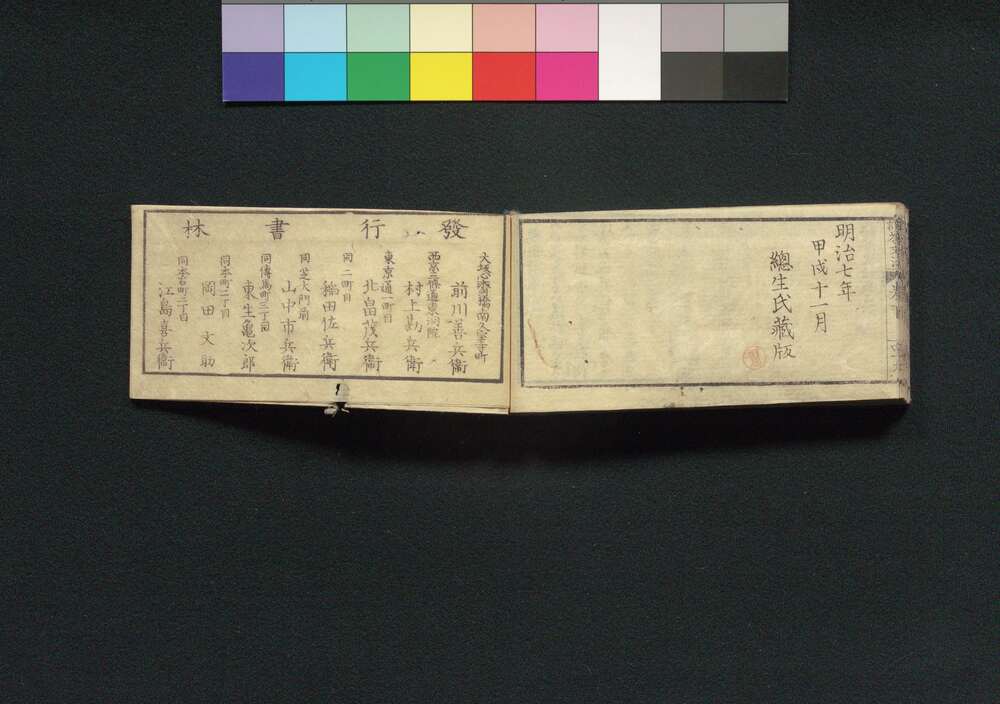 明治七年
甲戌十一月
總生氏藏版
發行書林
大坂心齋橋南久宝寺町
前川善兵衞
西京二條通東洞院
村上勘兵衞
東京通一町目
北畠茂兵衞
同二町目
稲田佐兵衞
同芝大門前
山中市兵衞
同傳馬町三丁目
東生亀次郎
同本町二丁目
岡田文助
同本石町二丁目
江島喜兵衞